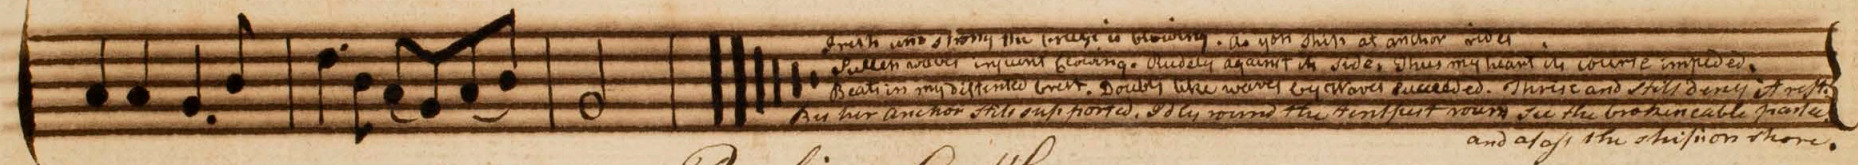 Fresh and strong the breeze is blowing. As yon ship at anchor rides.
Sullen waves incessant flowing. Rudely against its side. Thus my heart its course impeded.
Beats in my distented brest. Doubts like waves by Waves succeeded. Thrise and still deny it rest.
By her anchor still supported. Idly round the tempest roum See the broken cable
and the ship on shore.